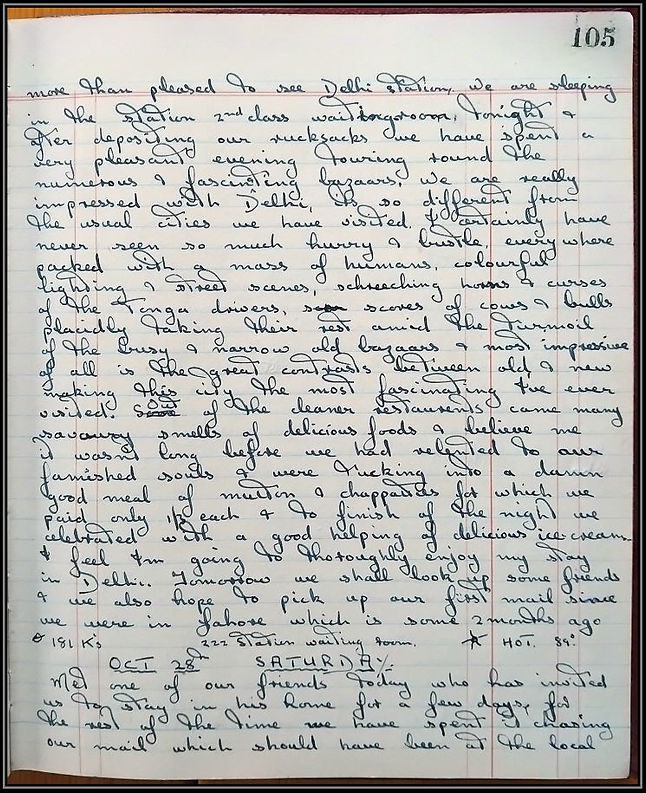 105
more than pleased to see Delhi station. We are sleeping
in the station 2nd class waitingroom, tonight &
after depositing our rucksacks we have spent a
very pleasant evening touring round the
numerous & fascinating bazaars. We are really
impressed with Delhi, its so different from
the usual cities we have visited. I certainly have
never seen so much hurry & bustle, everywhere
packed with a mass of humans, colourful
lighting & street scenes, schreeching horns & curses
of the Tonga drivers, scores of cows & bulls
plaicidly taking their rest amid the turmoil
of the busy & narrow old bazaars & most impressive
of all is the great contrasts between old & new
making this city the most fascinating I've ever
visited. Out of the cleaner restaurents came many
savoury smells of delicious foods & believe me
it wasn't long before we had relented to our
famished souls & were tucking into a damn
good meal of mutton & chappaties for which we
paid only each & to finish of the night we
celebrated with a good helping of delicious icecream.
I feel I'm going to thoroughly enjoy my stay
in Delhi. Tomorrow we shall look up some friends
& we also hope to pick up our first mail since
we were in Lahore which is some 2 months ago
181 K's 222 Station waiting room. HOT. 89°
OCT 28th SATURDAY.
Met one of our friends today who has invited
us to stay in his home for a few days, for
the rest of the time we have spent it chasing
our mail which should have been at the local